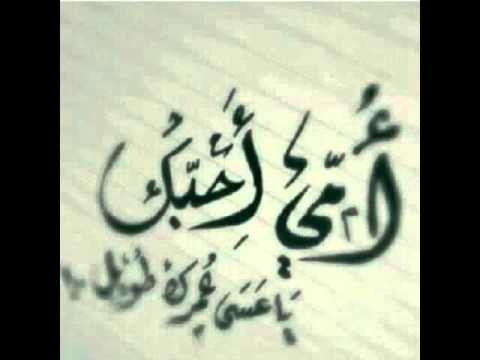 أُمّي أُحبّك
يَا عَسَى عُمرِك طَويل